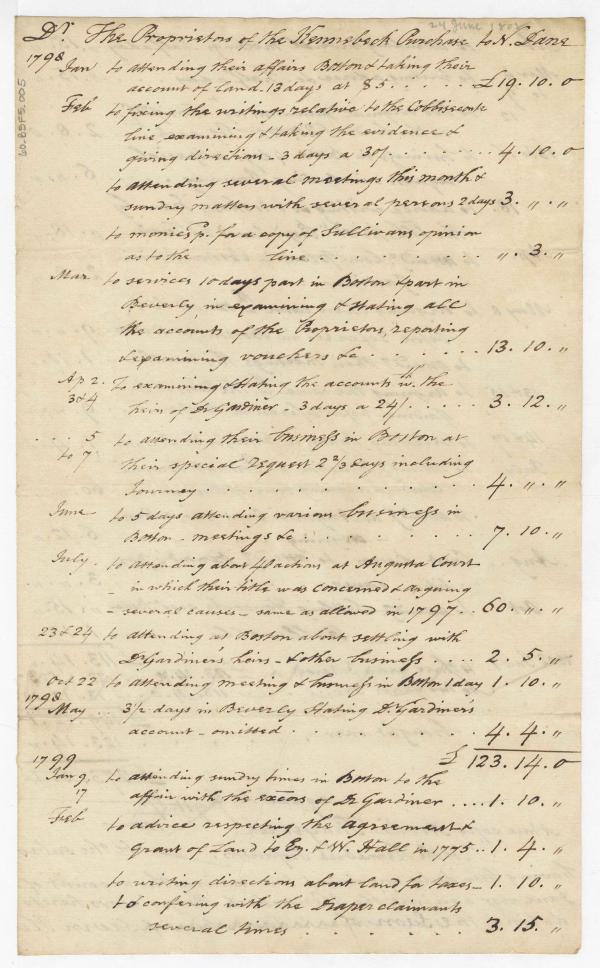 24 June 1802
Dr. The Proprietors of the Kennebeck Purchase to N. Dane
1798
Jan to attending their affairs Boston & taking their
account of land. 13 days at $5 . . . . . £19. 10. 0
Feb to fixing the writings relative to the Cobbiseconte
line, examining & taking the evidence &
giving directions - 3 days a 30/ . . . . . . . 4. 10. 0
to attending several meetings this month &
sundry matters with several persons 2 days 3. " . "
to monies pd. for a copy of Sullivans opinion
as to the line . . . . . . . . . " . 3. "
Mar to services 10 days part in Boston & part in
Beverly, in examining & stating all
the accounts of the Proprietors, reporting
& examining vouchers &c . . . . . . 13. 10. "
Ap 2. To examining & stating the accounts wth. the
3 & 4 heirs of Dr Gardiner - 3 days a 24/ . . . . . 3. 12. "
. . . 5 to attending their business in Boston at
to 7 their special request 2 2/3 days including
Journey . . . . . . . . . . . 4. " . "
June to 5 days attending various business in
Boston - meetings &c . . . . . . . . 7. 10. "
July to attending about 40 actions at Augusta Court
- in which their title was concerned & arguing
- several causes - same as allowed in 1797 . . 60. " . "
23 & 24 to attending at Boston about settling with
Dr Gardiner's heirs - & other business . . . . 2. 5. "
Oct 22 to attending meeting & business in Boston 1 day 1. 10. "
1798
May . . 3 1/2 days in Beverly stating Dr. Gardiner's
account - omitted . . . . . . . . . 4. 4. "
£ 123. 14. 0
1799
Jan 9, to attending sundry times in Boston to the
17 affair with the excors of Dr Gardiner . . . . 1. 10. "
Feb to advice respecting the agreement &
Grant of Land to & W. Hall in 1775 . . 1. 4. "
to writing directions about land for taxes - 1. 10. "
to confering with the Draper claimants
several times . . . . . . . . 3. 15. "
60.BSF5.005